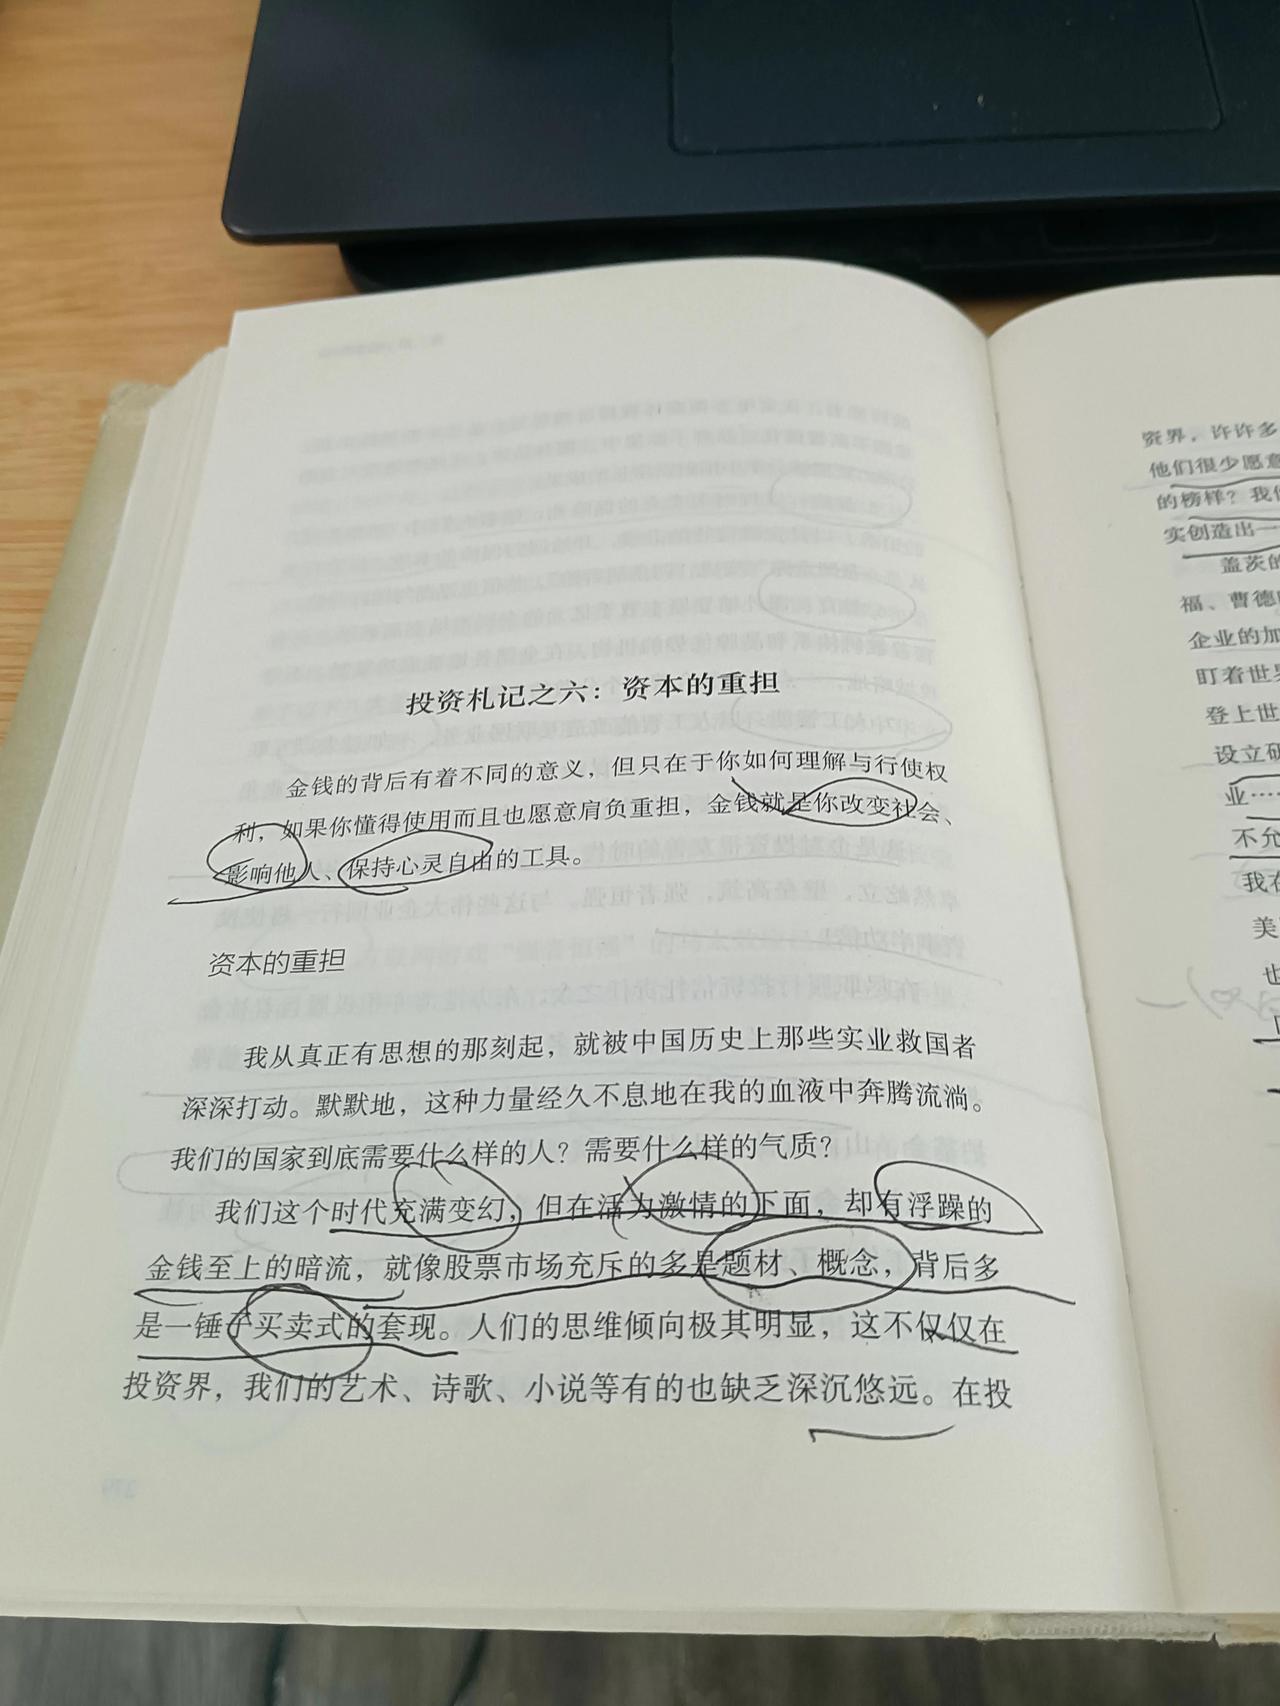 投资札记之六：资本的重担
金钱的背后有着不同的意义，但只在于你如何理解与行使权
利，如果你懂得使用而且也愿意肩负重担，金钱就是你改变社会、
影响他人、保持心灵自由的工具。
资本的重担
我从真正有思想的那刻起，就被中国历史上那些实业救国者
深深打动。默默地，这种力量经久不息地在我的血液中奔腾流淌。
我们的国家到底需要什么样的人？需要什么样的气质？
我们这个时代充满变幻，但在活力激情的下面，却有浮躁的
金钱至上的暗流，就像股票市场充斥的多是题材、概念，背后多
是一锤子买卖式的套现。人们的思维倾向极其明显，这不仅仅在
投资界，我们的艺术、诗歌、小说等有的也缺乏深沉悠远。在投
资界，许许多
他们很少愿意
的榜样？我们
实创造出一
盖茨的
福、曹德
企业的加
盯着世界
登上世
设立研
业……
不允
我在
美
也